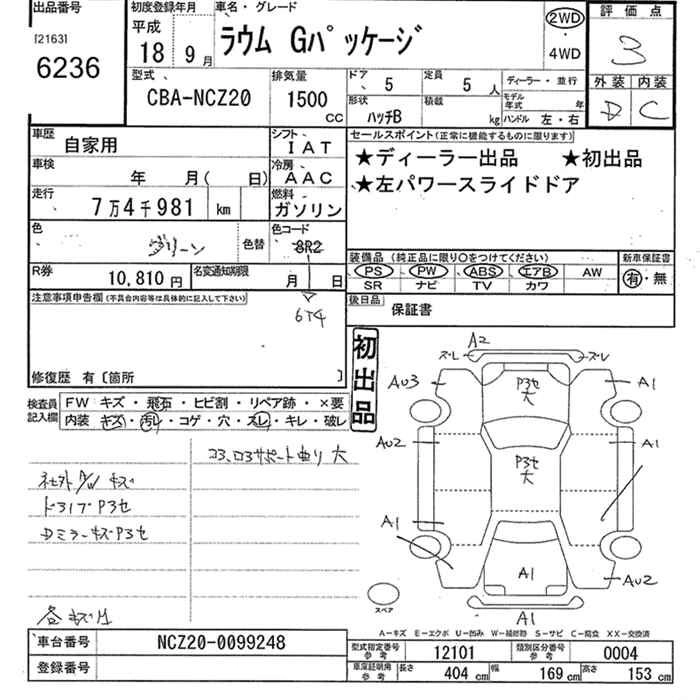 出品番号
[2163]
6236
初度登録年月
平成
18 9月
車名・グレード
ラウム Gパッケージ
2WD
・
4WD
評価点
3
外装 内装
D C
型式
CBA-NCZ20
排気量
1500
CC
ドア
5
定員
5 人
ディーラー・並行
形状
ハッチB
積載
kg
モデル年式 年
ハンドル 左・右
車歴
自家用
シフト
IAT
車検
年 月( 日)
冷房
AAC
走行
7万4千981 km
燃料
ガソリン
色
グリーン
色替
色コード
8R2
6T4
R券
10,810 円
名変通知期限
月 日
セールスポイント(正常に機能するものに限ります)
★ディーラー出品 ★初出品
★左パワースライドドア
装備品(純正品に限り〇をつけてください)
PS PW ABS エアB AW
SR ナビ TV カワ
新車保証書
有・無
後日品
保証書
注意事項申告欄(不具合内容等は具体的に記入して下さい)
修復歴 有〔箇所 〕
初出品
検査員記入欄
FW キズ・飛石・ヒビ割・リペア跡・×要
内装 キズ・汚レ・コゲ・穴・スレ・キレ・破レ
コ3、ロ3サポート曲り 大
A/W キズ
ドアP3セ
Dミラーキズ P3セ
A2
ズレ ズレ
AU3
P3セ
大
A1
AU2
P3セ
大
A1
A1
A1
AU2
A1
スペア
A-キズ E-エクボ U-凹み W-補修跡 S-サビ C-腐食 XX-交換済
車台番号
NCZ20-0099248
登録番号
型式指定番号
参考
12101
類別区分番号
参考
0004
車庫証明用
参考
長さ
404 cm
幅
169 cm
高さ
153 cm